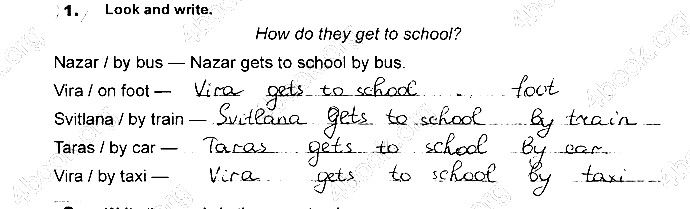 1. Look and write.
How do they get to school?
Nazar / by bus — Nazar gets to school by bus.
Vira / on foot — Vira gets to school .. foot
Svitlana / by train — Svitlana gets to school by train
Taras / by car — Taras gets to school by car
Vira / by taxi — Vira gets to school by taxi